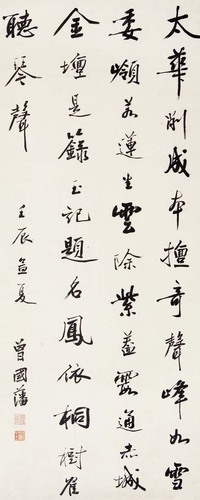 太華削成本擅奇聲峰如雪
委嶺若蓮生雲除紫蓋霞通赤城
金壇是籙玉記題名鳳依桐樹隺
聽琴聲
壬辰孟夏 曾國藩